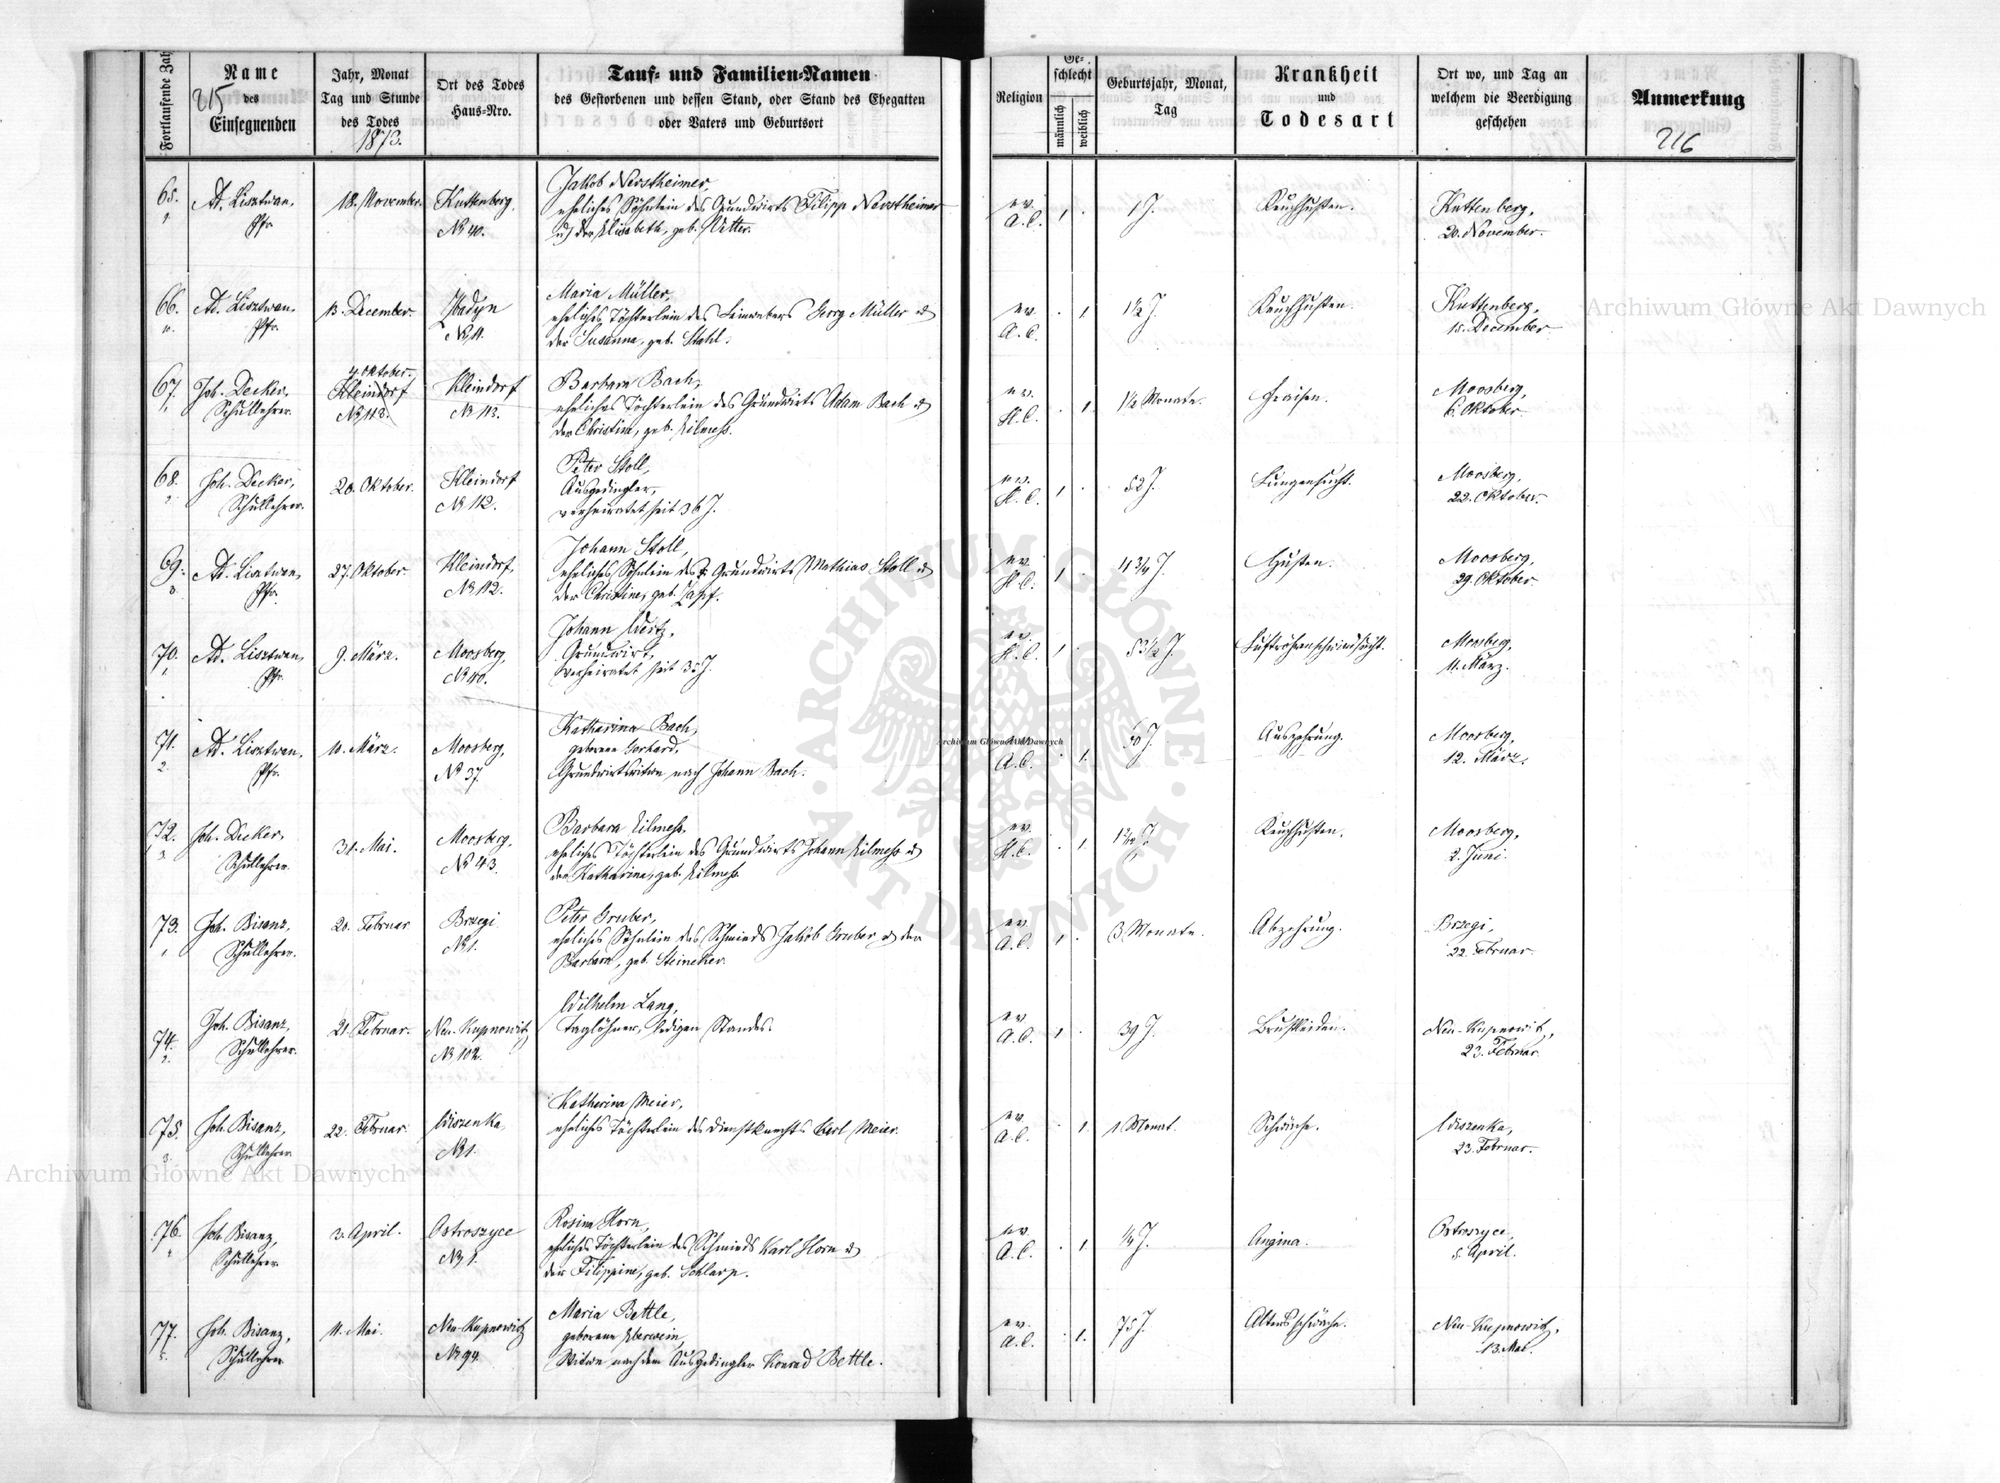 Fortlaufende Zahl
Name
des
Einsegnenden
215
Jahr, Monat
Tag und Stunde
des Todes
1873.
Ort des Todes
Haus-Nro.
Tauf- und Familien-Namen
des Gestorbenen und dessen Stand, oder Stand des Ehegatten
oder Vaters und Geburtsort
Religion
Geschlecht
männlich
weiblich
Geburtsjahr, Monat,
Tag
Krankheit
und
Todesart
Ort wo, und Tag an
welchem die Beerdigung
geschehen
Anmerkung
216
65. Ad. Lisztwan, Pfr.
18. November.
Kuttenberg, No 40.
Jakob Nerstheimer,
eheliches Söhnlein des Grundwirts Filipp Nerstheimer
und der Elisabeth, geb. Vetter.
ev. A. C. 1 . 1 J. Keuchhusten.
Kuttenberg, 20. November.
66. Ad. Lisztwan, Pfr.
13. December.
No 11.
Maria Müller,
eheliches Töchterlein des Leinwebers Georg Müller u
der Susanna, geb. Stahl.
ev. A. C. . 1. 1½ J. Keuchhusten.
Kuttenberg, 15. December
67. Joh. Decker, Schullehrer.
4. Oktober.
Kleindorf No 113.
Kleindorf No 113.
Barbara Bach,
eheliches Töchterlein des Grundwirts Adam Bach u
der Christine, geb. Eilmess.
ev. H. C. . 1. 1½ Monate. Fraisen.
Moosberg, 6. Oktober
68. Joh. Decker, Schullehrer.
20. Oktober.
Kleindorf No 112.
Peter Stoll,
Ausgedingler,
verheiratet seit 36 J.
ev. H. C. 1 . 52 J. Lungensucht.
Moosberg, 22. Oktober.
69. Ad. Lisztwan, Pfr.
27. Oktober.
Kleindorf, No 112.
Johann Stoll,
eheliches Söhnlein des Grundwirts Mathias Stoll u
der Christine, geb. Zapf.
ev. H. C. 1 . 11¾ J. Husten.
Moosberg, 29. Oktober
70. Ad. Lisztwan, Pfr.
9. März.
Moosberg, No 40.
Johann Weitz,
Grundwirt,
verheiratet seit J.
ev. H. C. 1 . 53½ J. Luftröhrenschwindsucht.
Moosberg, 11. März.
71. Ad. Lisztwan, Pfr.
10. März.
Moosberg, No 37.
Katharina Bach,
geborene Gerhard,
Grundwirtswitwe nach Johann Bach.
A. C. . 1. J. Auszehrung.
Moosberg, 12. März.
72. Joh. Decker, Schullehrer.
31. Mai.
Moosberg, No 43.
Barbara Eilmess.
eheliches Töchterlein des Grundwirts Johann Eilmess u
der Katharina, geb. Eilmess.
ev. H. C. . 1. Keuchhusten.
Moosberg, 2. Juni.
73. Joh. Bisanz, Schullehrer.
20. Februar
Brzegi No 1.
Peter Gruber,
eheliches Söhnlein des Schmieds Jakob Gruber, u der
Barbara, geb. Steineker.
ev. A. C. 1 . 3 Monate. Abzehrung.
Brzegi, 22. Februar.
74. Joh. Bisanz, Schullehrer.
21. Februar.
Neu-Kupnowitz No 102.
Wilhelm Lang,
Taglöhner, ledigen Standes.
ev. A. C. 1 . 39 J. Brustleiden.
Neu-Kupnowitz, 23. Februar.
75. Joh. Bisanz, Schullehrer
22. Februar.
Wiszenka, No 1.
Katharina Meier,
eheliches Töchterlein des Dienstknechts Carl Meier.
ev. A. C. . 1. 1 Monat. Schwäche.
Wiszenka, 23. Februar.
76. Joh. Bisanz, Schullehrer
3. April.
Ostroszyce No 1.
Rosina Horn,
eheliches Töchterlein des Schmieds Karl Horn u
der Filippine, geb. Schlarp.
ev. A. C. . 1. ¼ J. Angina.
Ostroszyce, 5. April.
77. Joh. Bisanz, Schullehrer
11. Mai.
Neu-Kupnowitz No 94.
Maria Bettle,
geborene Eberwein,
Witwe nach dem Ausgedingler Konrad Bettle.
ev. A. C. . 1. 75 J. Altersschwäche.
Neu-Kupnowitz, 13. Mai.
Archiwum Główne Akt Dawnych
Archiwum Główne Akt Dawnych
Archiwum Główne Akt Dawnych
ARCHIWUM GŁÓWNE AKT DAWNYCH